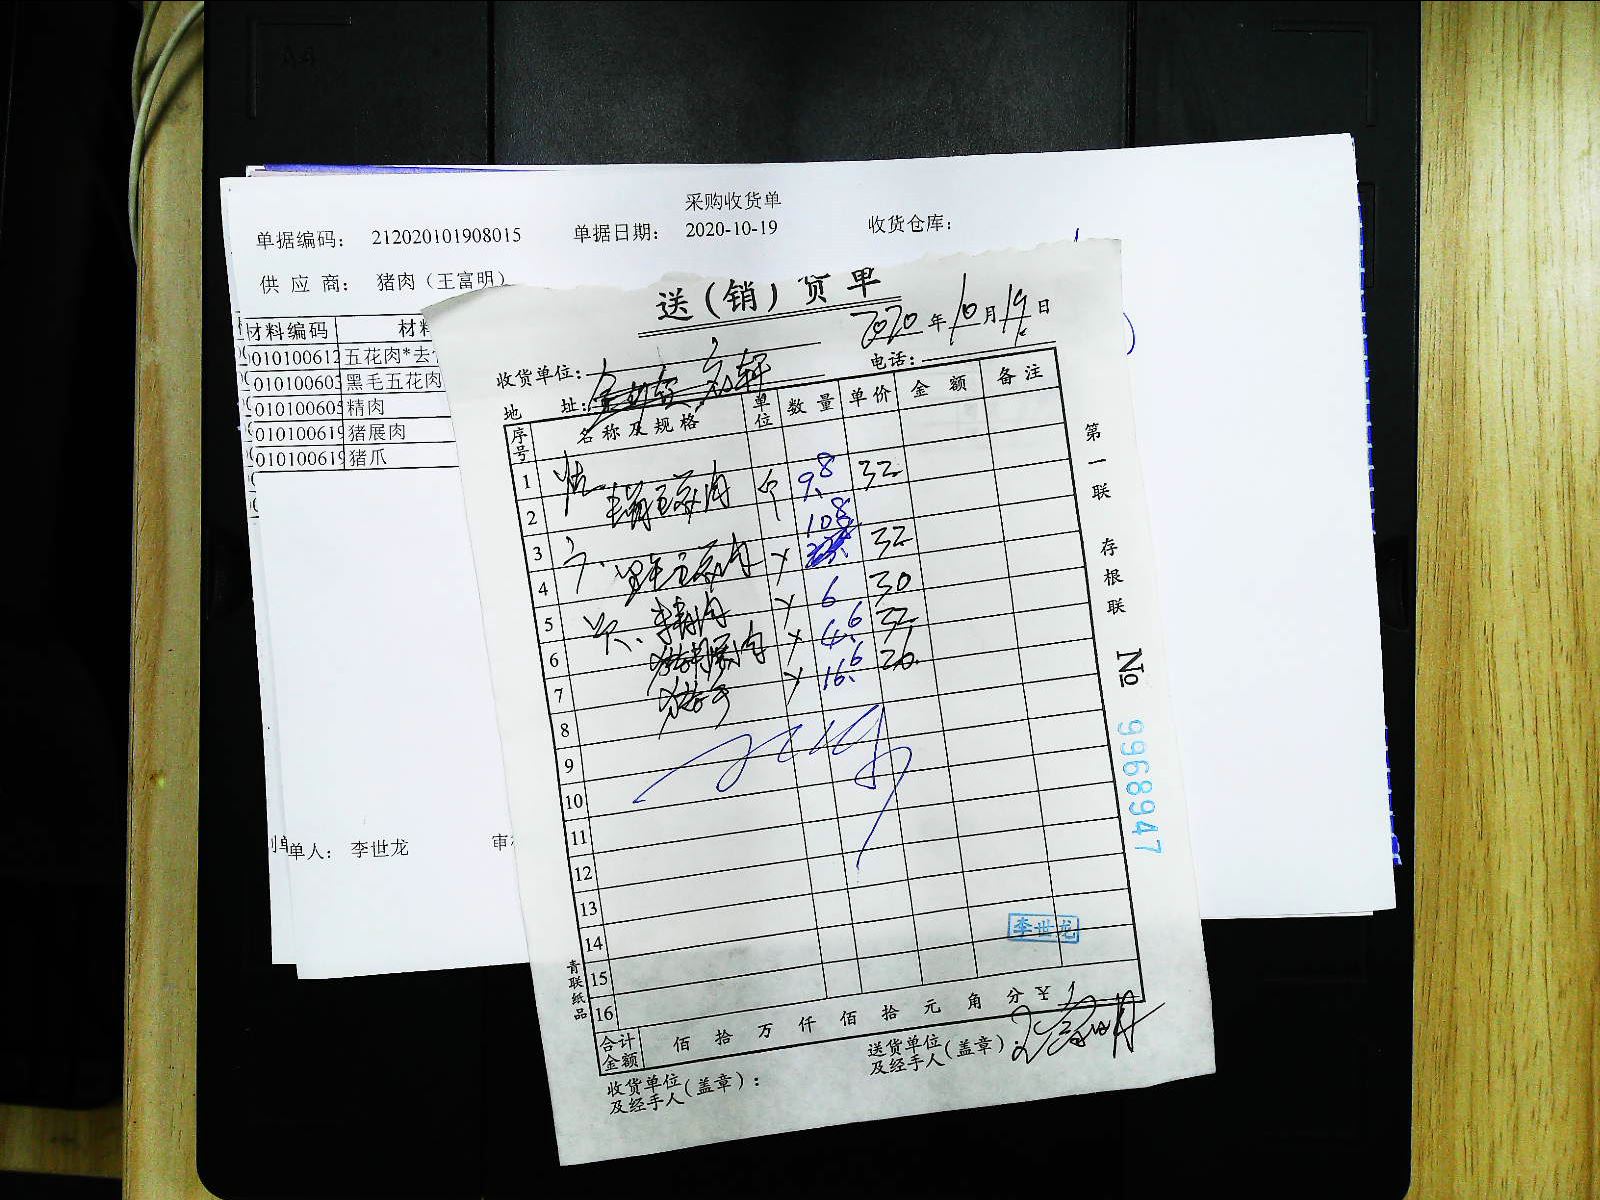 采购收货单
单据编码： 212020101908015 单据日期： 2020-10-19 收货仓库：
供 应 商： 猪肉（王富明）
材料编码 材料
010100612 五花肉*去
010100603 黑毛五花肉
010100605 精肉
010100619 猪展肉
010100619 猪爪
单人： 李世龙 审
送（销）货单
2020 年 10 月 19 日
收货单位：
电话：
地 址：
序号 名称及规格 单位 数量 单价 金额 备注
1 9.8 32
2
3 10.8 32
4 五花肉
5 精肉 6 30
6 猪展肉 4.6 32
7 16.6 20
8
9
10
11
12
13
14
15
16
李世龙
合计金额 佰 拾 万 仟 佰 拾 元 角 分 ¥
收货单位及经手人（盖章）：
送货单位及经手人（盖章）：
王富明
第一联 存根联
№ 9968947
青联纸品